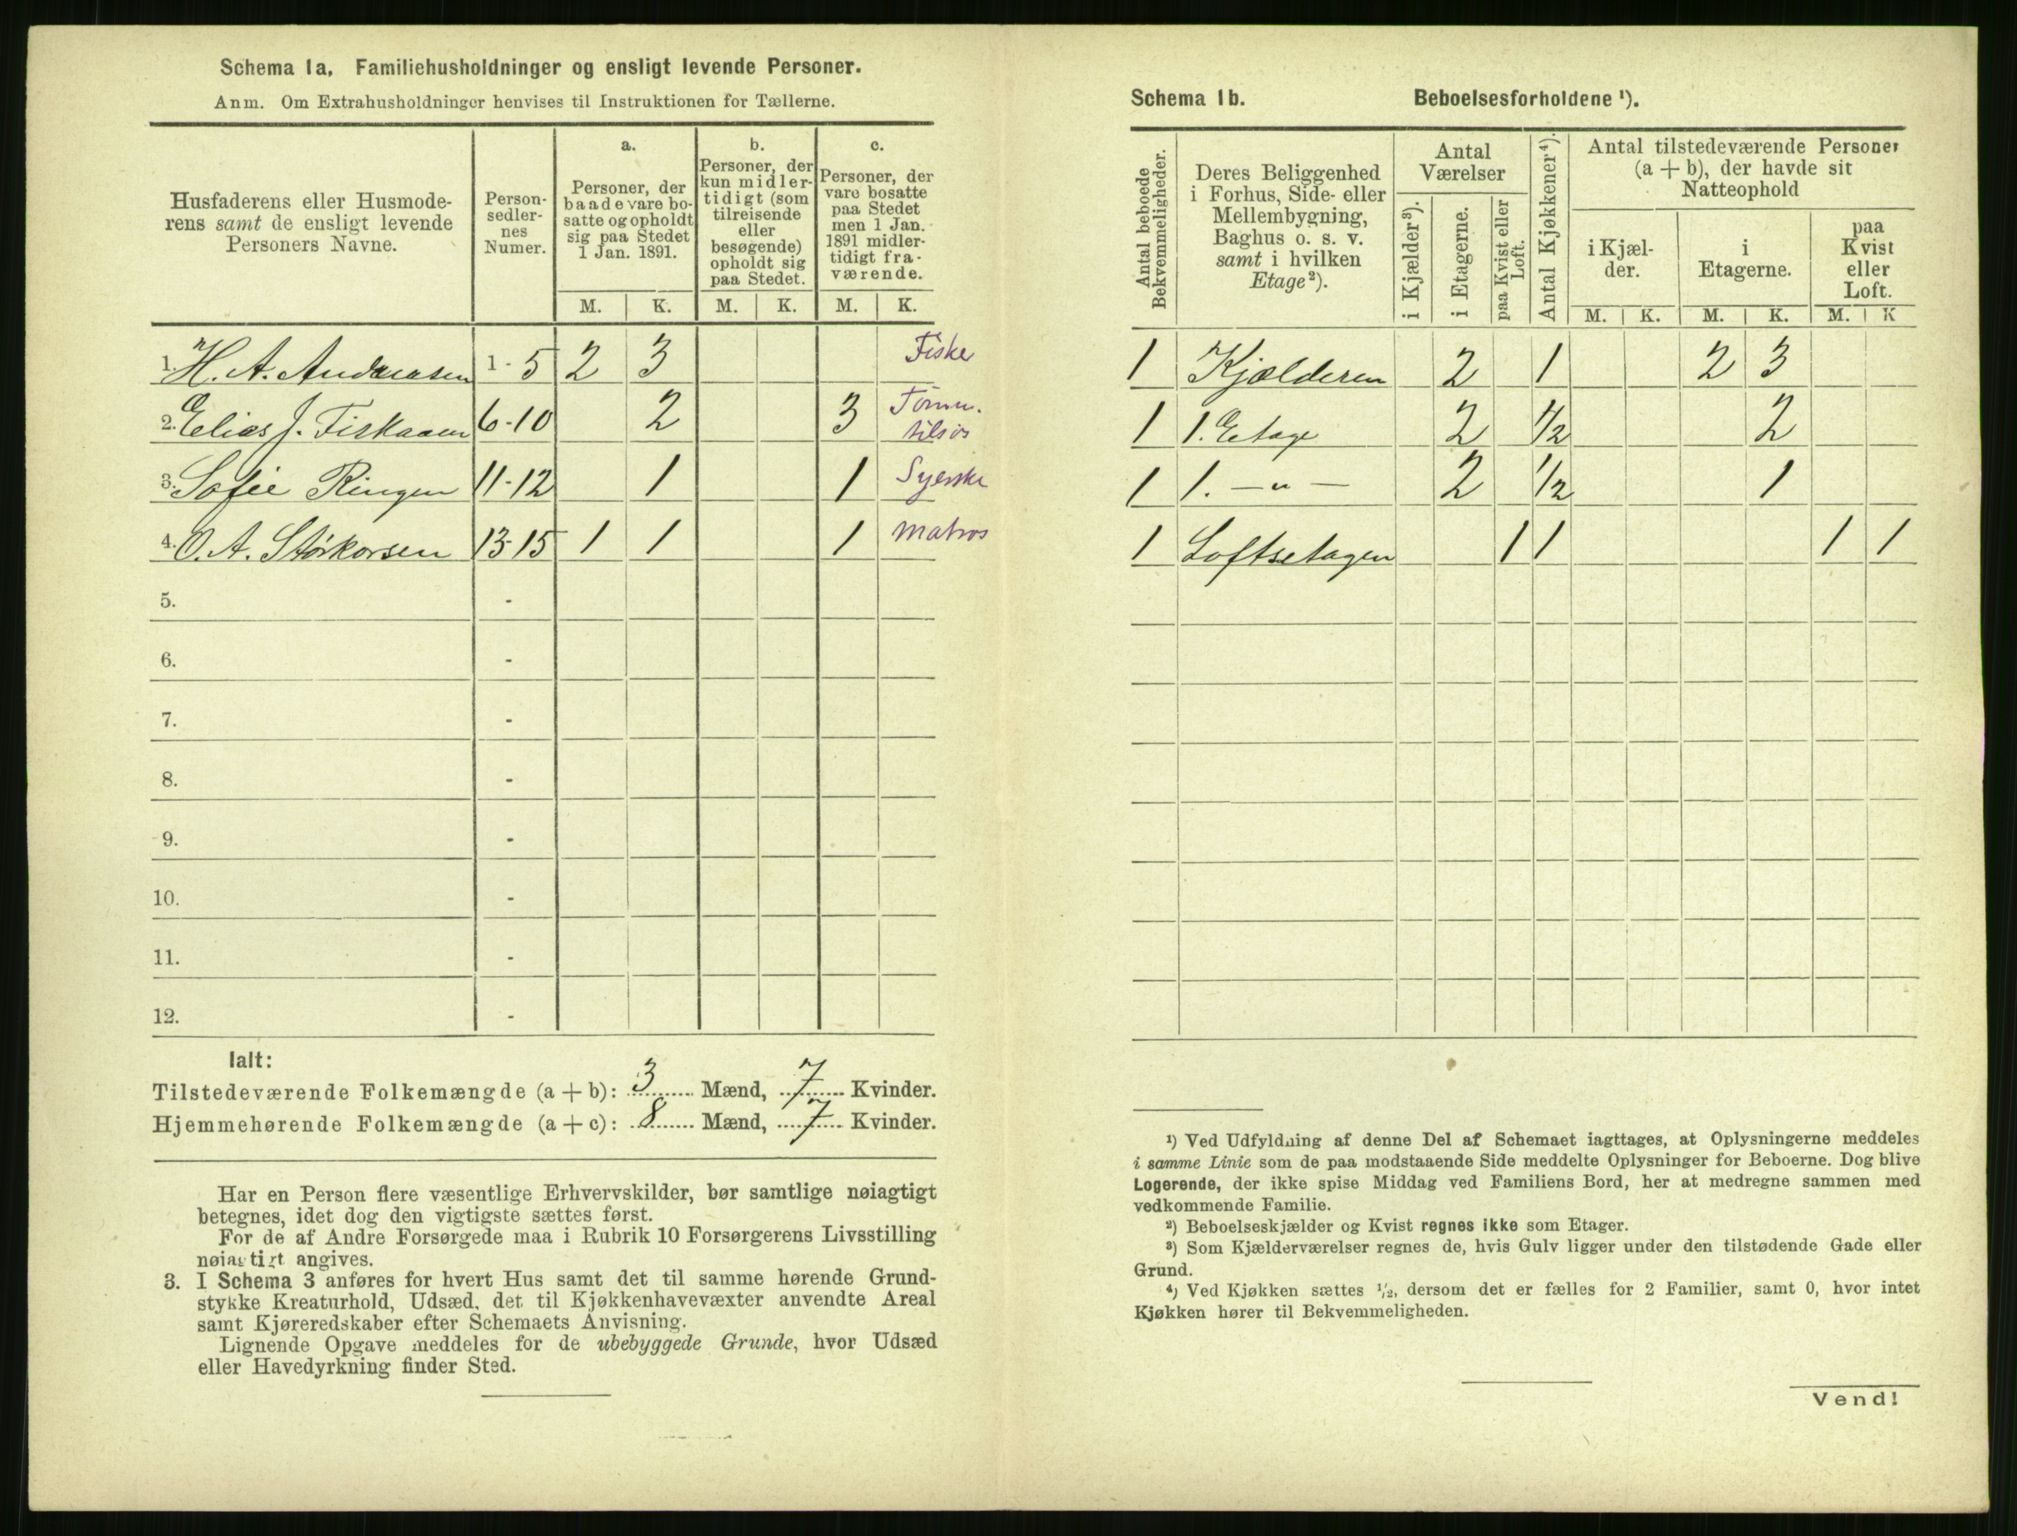 Schema 1a. Familiehusholdninger og ensligt levende Personer.
Anm. Om Extrahusholdninger henvises til Instruktionen for Tællerne.
Husfaderens eller Husmode-
rens samt de ensligt levende
Personers Navne.
Person-
sedler-
nes
Numer.
a.
Personer, der
baade vare bo-
satte og opholdt
sig paa Stedet
1 Jan. 1891.
b.
Personer, der
kun midler-
tidigt (som
tilreisende
eller
besøgende)
opholdt sig
paa Stedet.
c.
Personer, der
vare bosatte
paa Stedet
men 1 Jan.
1891 midler-
tidigt fra-
værende.
M. K. M. K. M. K.
1. H. A. Andreasen 1-5 2 3 Fiske
2. Elias J. Fiskaaen 6-10 2 3 Tømm.
3. Sofie Ringen 11-12 1 1 Syerske
4. O. A. Størkorsen 13-15 1 1 1 Matros
5. -
6. -
7. -
8. -
9. -
10. -
11. -
12. -
Ialt:
Tilstedeværende Folkemængde (a + b): 3 Mænd, 7 Kvinder.
Hjemmehørende Folkemængde (a + c): 8 Mænd, 7 Kvinder.
Har en Person flere væsentlige Erhvervskilder, bør samtlige nøiagtigt
betegnes, idet dog den vigtigste sættes først.
For de af Andre Forsørgede maa i Rubrik 10 Forsørgerens Livsstilling
nøiagtigt angives.
3. I Schema 3 anføres for hvert Hus samt det til samme hørende Grund-
stykke Kreaturhold, Udsæd, det til Kjøkkenhavevæxter anvendte Areal
samt Kjøreredskaber efter Schemaets Anvisning.
Lignende Opgave meddeles for de ubebyggede Grunde, hvor Udsæd
eller Havedyrkning finder Sted.
Schema 1b. Beboelsesforholdene ¹).
Antal beboede
Bekvemmeligheder.
Deres Beliggenhed
i Forhus, Side- eller
Mellembygning,
Baghus o. s. v.
samt i hvilken
Etage²).
Antal
Værelser
i Kjælder³).
i Etagerne.
paa Kvist eller
Loft.
Antal Kjøkkener⁴).
Antal tilstedeværende Personer
(a + b), der havde sit
Natteophold
i Kjæl-
der.
i
Etagerne.
paa
Kvist
eller
Loft.
M. K. M. K. M. K
1 Kjælderen 2 1 2 3
1 1. Etage 2 1/2 2
1 1. —„— 2 1/2 1
1 Loftsetagen 1 1 1 1
¹) Ved Udfyldning af denne Del af Schemaet iagttages, at Oplysningerne meddeles
i samme Linie som de paa modstaaende Side meddelte Oplysninger for Beboerne. Dog blive
Logerende, der ikke spise Middag ved Familiens Bord, her at medregne sammen med
vedkommende Familie.
²) Beboelseskjælder og Kvist regnes ikke som Etager.
³) Som Kjælderværelser regnes de, hvis Gulv ligger under den tilstødende Gade eller
Grund.
⁴) Ved Kjøkken sættes ¹/₂, dersom det er fælles for 2 Familier, samt 0, hvor intet
Kjøkken hører til Bekvemmeligheden.
Vend!